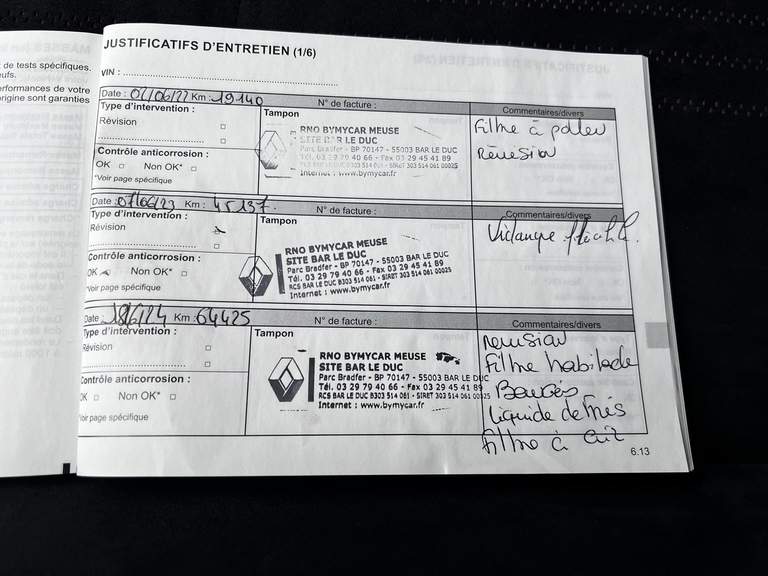 de tests spécifiques.
eufs.
erformances de votre
origine sont garanties
JUSTIFICATIFS D'ENTRETIEN (1/6)
VIN :
Date : 02/06/22 Km : 19140 N° de facture : Commentaires/divers
Type d'intervention : Tampon
Révision
Contrôle anticorrosion :
OK Non OK*
*Voir page spécifique
RNO BYMYCAR MEUSE
SITE BAR LE DUC
Parc Bradfer - BP 70147 - 55003 BAR LE DUC
Tél. 03 29 79 40 66 - Fax 03 29 45 41 89
RCS BAR LE DUC B303 514 061 - SIRET 303 514 061 00025
Internet : www.bymycar.fr
Filtre à pollen
Révision
Date : 07/06/23 Km : 45137. N° de facture : Commentaires/divers
Type d'intervention : Tampon
Révision
Contrôle anticorrosion :
OK Non OK*
*Voir page spécifique
RNO BYMYCAR MEUSE
SITE BAR LE DUC
Parc Bradfer - BP 70147 - 55003 BAR LE DUC
Tél. 03 29 79 40 66 - Fax 03 29 45 41 89
RCS BAR LE DUC B303 514 061 - SIRET 303 514 061 00025
Internet : www.bymycar.fr
Vidange
Date : 18/6/24 Km : 64425 N° de facture : Commentaires/divers
Type d'intervention : Tampon
Révision
Contrôle anticorrosion :
OK Non OK*
*Voir page spécifique
RNO BYMYCAR MEUSE
SITE BAR LE DUC
Parc Bradfer - BP 70147 - 55003 BAR LE DUC
Tél. 03 29 79 40 66 - Fax 03 29 45 41 89
RCS BAR LE DUC B303 514 061 - SIRET 303 514 061 00025
Internet : www.bymycar.fr
revision
Filtre habitacle
Bougies
liquide de freins
filtre à air
6.13